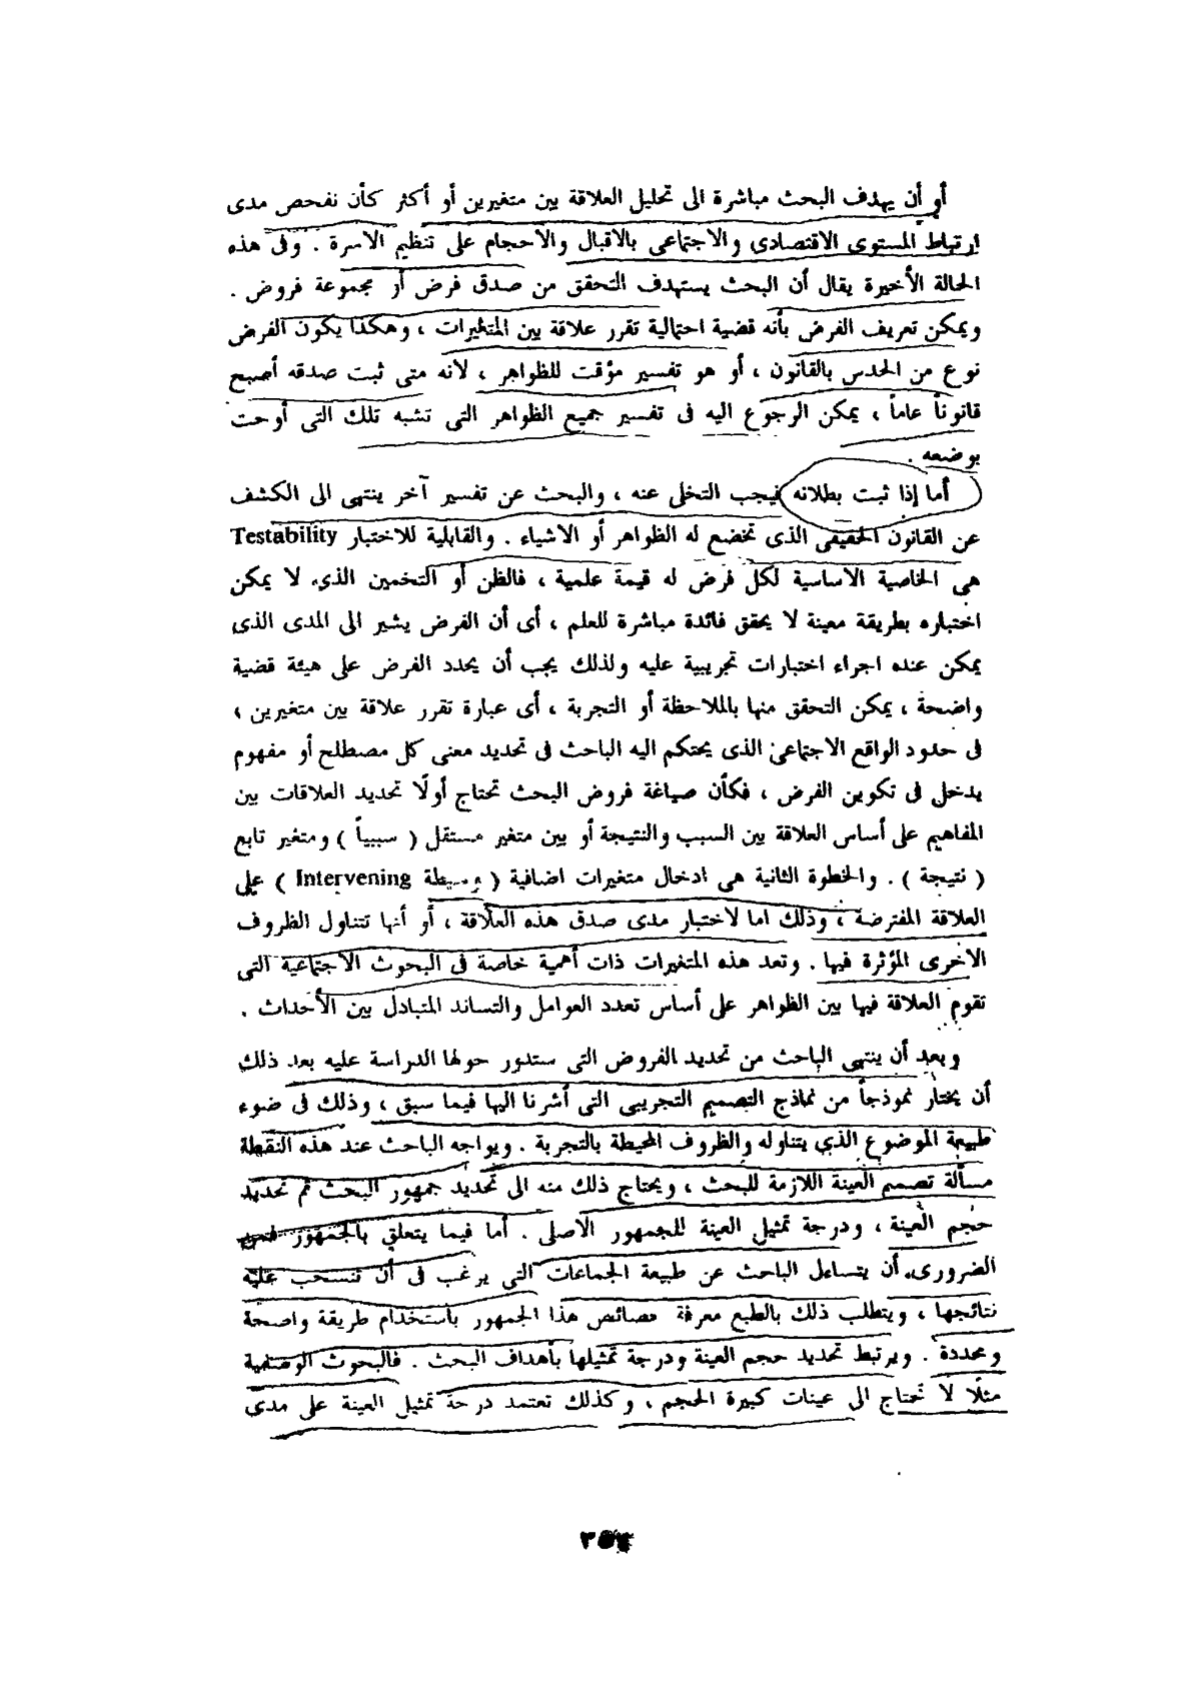 أو أن يهدف البحث مباشرة الى تحليل العلاقة بين متغيرين أو أكثر كأن نفحص مدى
ارتباط المستوى الاقتصادى والاجتماعى بالاقبال والاحجام على تنظيم الاسرة . وفى هذه
الحالة الأخيرة يقال أن البحث يستهدف التحقق من صدق فرض أو مجموعة فروض .
ويمكن تعريف الفرض بأنه قضية احتمالية تقرر علاقة بين المتغيرات ، وهكذا يكون الفرض
نوع من الحدس بالقانون ، أو هو تفسير مؤقت للظواهر ، لانه متى ثبت صدقه أصبح
قانوناً عاماً ، يمكن الرجوع اليه فى تفسير جميع الظواهر التى تشبه تلك التى أوحت
بوضعه .
أما إذا ثبت بطلانه فيجب التخلى عنه ، والبحث عن تفسير آخر ينتهى الى الكشف
عن القانون الحقيقى الذى تخضع له الظواهر أو الاشياء . والقابلية للاختبار Testability
هى الخاصية الاساسية لكل فرض له قيمة علمية ، فالظن أو التخمين الذى لا يمكن
اختباره بطريقة معينة لا يحقق فائدة مباشرة للعلم ، أى أن الفرض يشير الى المدى الذى
يمكن عنده اجراء اختبارات تجريبية عليه ولذلك يجب أن يحدد الفرض على هيئة قضية
واضحة ، يمكن التحقق منها بالملاحظة أو التجربة ، أى عبارة تقرر علاقة بين متغيرين ،
فى حدود الواقع الاجتماعى الذى يحتكم اليه الباحث فى تحديد معنى كل مصطلح أو مفهوم
يدخل فى تكوين الفرض ، فكأن صياغة فروض البحث تحتاج أولًا تحديد العلاقات بين
المفاهيم على أساس العلاقة بين السبب والنتيجة أو بين متغير مستقل ( سببياً ) ومتغير تابع
( نتيجة ) . والخطوة الثانية هى ادخال متغيرات اضافية ( وسيطة Intervening ) على
العلاقة المفترضة ، وذلك اما لاختبار مدى صدق هذه العلاقة ، أو أنها تتناول الظروف
الاخرى المؤثرة فيها . وتعد هذه المتغيرات ذات أهمية خاصة فى البحوث الاجتماعية التى
تقوم العلاقة فيها بين الظواهر على أساس تعدد العوامل والتساند المتبادل بين الأحداث .
وبعد أن ينتهى الباحث من تحديد الفروض التى ستدور حولها الدراسة عليه بعد ذلك
أن يختار نموذجاً من نماذج التصميم التجريبى التى أشرنا اليها فيما سبق ، وذلك فى ضوء
طبيعة الموضوع الذى يتناوله والظروف المحيطة بالتجربة . ويواجه الباحث عند هذه النقطة
مسألة تصميم العينة اللازمة للبحث ، ويحتاج ذلك منه الى تحديد جمهور البحث ثم تحديد
حجم العينة ، ودرجة تمثيل العينة للجمهور الاصلى . أما فيما يتعلق بالجمهور فمن
الضرورى أن يتساءل الباحث عن طبيعة الجماعات التى يرغب فى أن تنسحب عليه
نتائجها ، ويتطلب ذلك بالطبع معرفة خصائص هذا الجمهور باستخدام طريقة واضحة
ومحددة . ويرتبط تحديد حجم العينة ودرجة تمثيلها بأهداف البحث . فالبحوث الوصفية
مثلًا لا تحتاج الى عينات كبيرة الحجم ، وكذلك تعتمد درجة تمثيل العينة على مدى